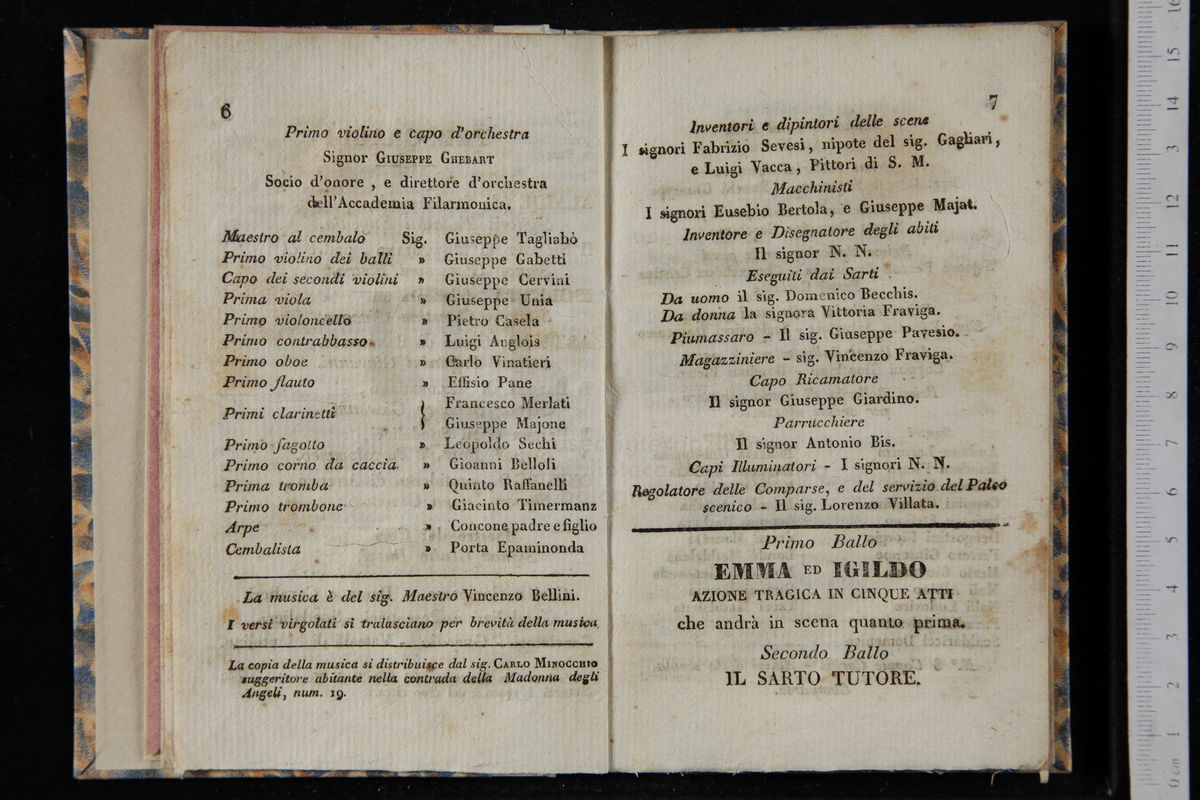 6
Primo violino e capo d'orchestra
Signor GIUSEPPE GHEBART
Socio d'onore , e direttore d'orchestra
dell'Accademia Filarmonica.
Maestro al cembalo Sig. Giuseppe Tagliabò
Primo violino dei balli » Giuseppe Gabetti
Capo dei secondi violini » Giuseppe Cervini
Prima viola » Giuseppe Unia
Primo violoncello » Pietro Casela
Primo contrabbasso » Luigi Anglois
Primo oboe » Carlo Vinatieri
Primo flauto » Effisio Pane
Primi clarinetti { Francesco Merlati
{ Giuseppe Majone
Primo fagotto » Leopoldo Sechi
Primo corno da caccia » Gioanni Belloli
Prima tromba » Quinto Raffanelli
Primo trombone » Giacinto Timermanz
Arpe » Concone padre e figlio
Cembalista » Porta Epaminonda
La musica è del sig. Maestro Vincenzo Bellini.
I versi virgolati si tralasciano per brevità della musica.
La copia della musica si distribuisce dal sig. CARLO MINOCCHIO
suggeritore abitante nella contrada della Madonna degli
Angeli, num. 19.
7
Inventori e dipintori delle scene
I signori Fabrizio Sevesi, nipote del sig. Gagliari,
e Luigi Vacca, Pittori di S. M.
Macchinisti
I signori Eusebio Bertola, e Giuseppe Majat.
Inventore e Disegnatore degli abiti
Il signor N. N.
Eseguiti dai Sarti
Da uomo il sig. Domenico Becchis.
Da donna la signora Vittoria Fraviga.
Piumassaro - Il sig. Giuseppe Pavesio.
Magazziniere - sig. Vincenzo Fraviga.
Capo Ricamatore
Il signor Giuseppe Giardino.
Parrucchiere
Il signor Antonio Bis.
Capi Illuminatori - I signori N. N.
Regolatore delle Comparse, e del servizio del Palco
scenico - Il sig. Lorenzo Villata.
Primo Ballo
EMMA ED IGILDO
AZIONE TRAGICA IN CINQUE ATTI
che andrà in scena quanto prima.
Secondo Ballo
IL SARTO TUTORE.
0 cm 1 2 3 4 5 6 7 8 9 10 11 12 13 14 15 16